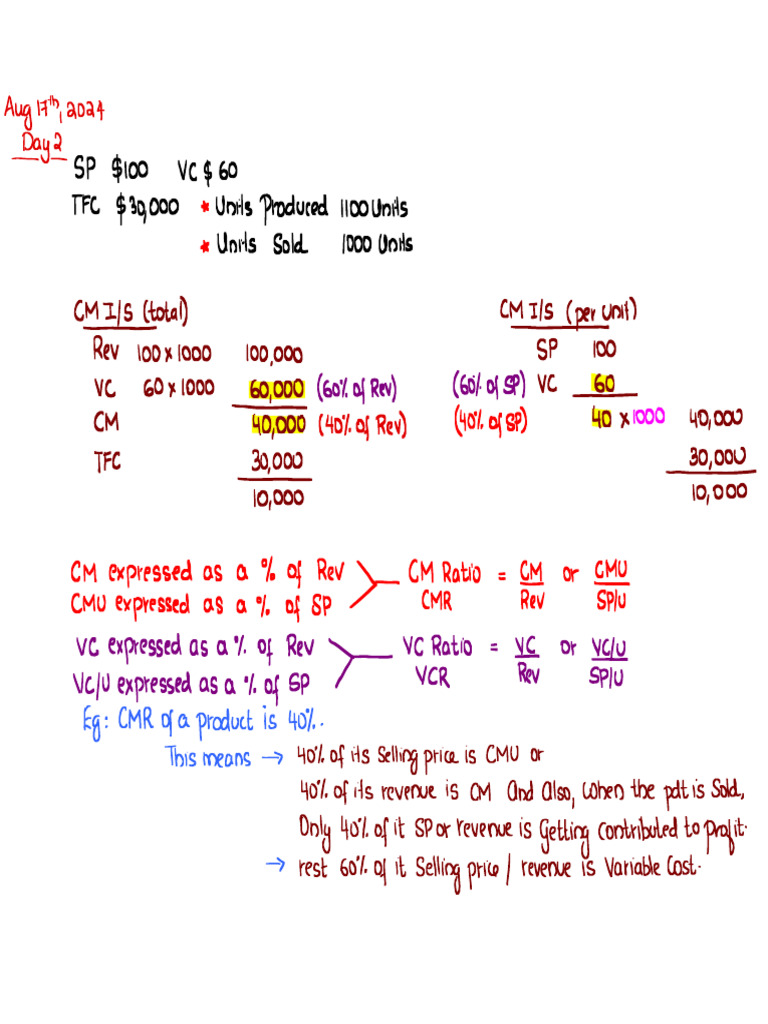 Aug 17th, 2024
Day 2
SP $100 VC $ 60
TFC $30,000 * Units Produced 1100 Units
* Units Sold 1000 Units
CM I/S (total)
Rev 100 x 1000 100,000
VC 60 x 1000 60,000 (60% of Rev)
CM 40,000 (40% of Rev)
TFC 30,000
10,000
CM I/S (per unit)
SP 100
(60% of SP) VC 60
(40% of SP) 40 x 1000 40,000
30,000
10,000
CM expressed as a % of Rev
CMU expressed as a % of SP
CM Ratio = CM/Rev or CMU/SP/U
CMR
VC expressed as a % of Rev
VC/U expressed as a % of SP
VC Ratio = VC/Rev or VC/U/SP/U
VCR
Eg: CMR of a product is 40%.
This means → 40% of its selling price is CMU or
40% of its revenue is CM And Also, when the pdt is Sold,
Only 40% of it SP or revenue is Getting contributed to Profit.
→ rest 60% of it Selling price / revenue is Variable Cost.